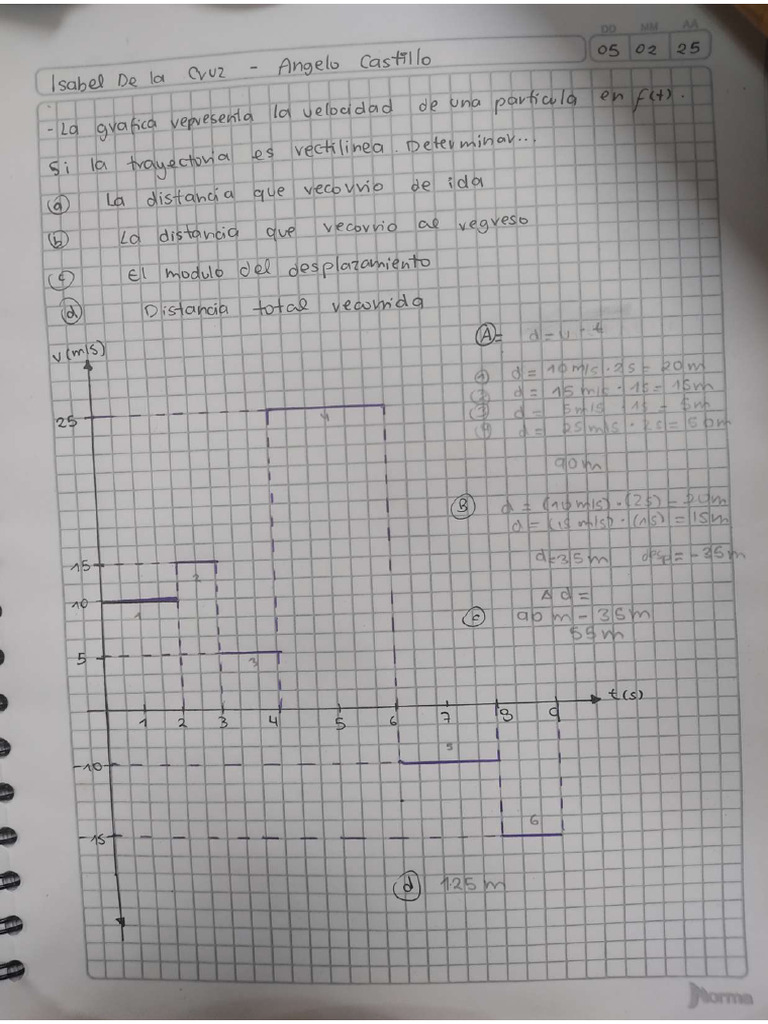 DD MM AA
05 02 25
Isabel De la Cruz - Angelo Castillo
- La grafica representa la velocidad de una particula en f(t).
Si la trayectoria es rectilinea. Determinar...
(a) La distancia que recorrio de ida
(b) La distancia que recorrio al regreso
(c) El modulo del desplazamiento
(d) Distancia total recorrida
(A)= d = v · t
(1) d = 10 m/s · 2s = 20 m
(2) d = 15 m/s · 1s = 15m
(3) d = 5m/s · 1s = 5m
(4) d = 25m/s · 2s = 50m
90m
(B) d = (10 m/s) · (2s) = 20m
d = (15 m/s) · (1s) = 15m
d=35m desp= -35m
Δd =
(c) 90 m - 35m
55m
v(m/s)
25
4
15
2
10
1
5
3
t(s)
1 2 3 4 5 6 7 8 9
5
-10
6
-15
(d) 125m
Norma